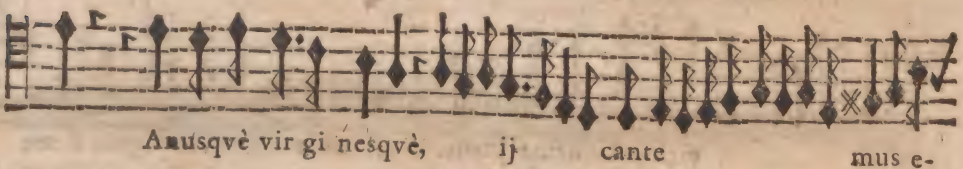 Anusqvè vir gi nesqvè, ij cante mus e-